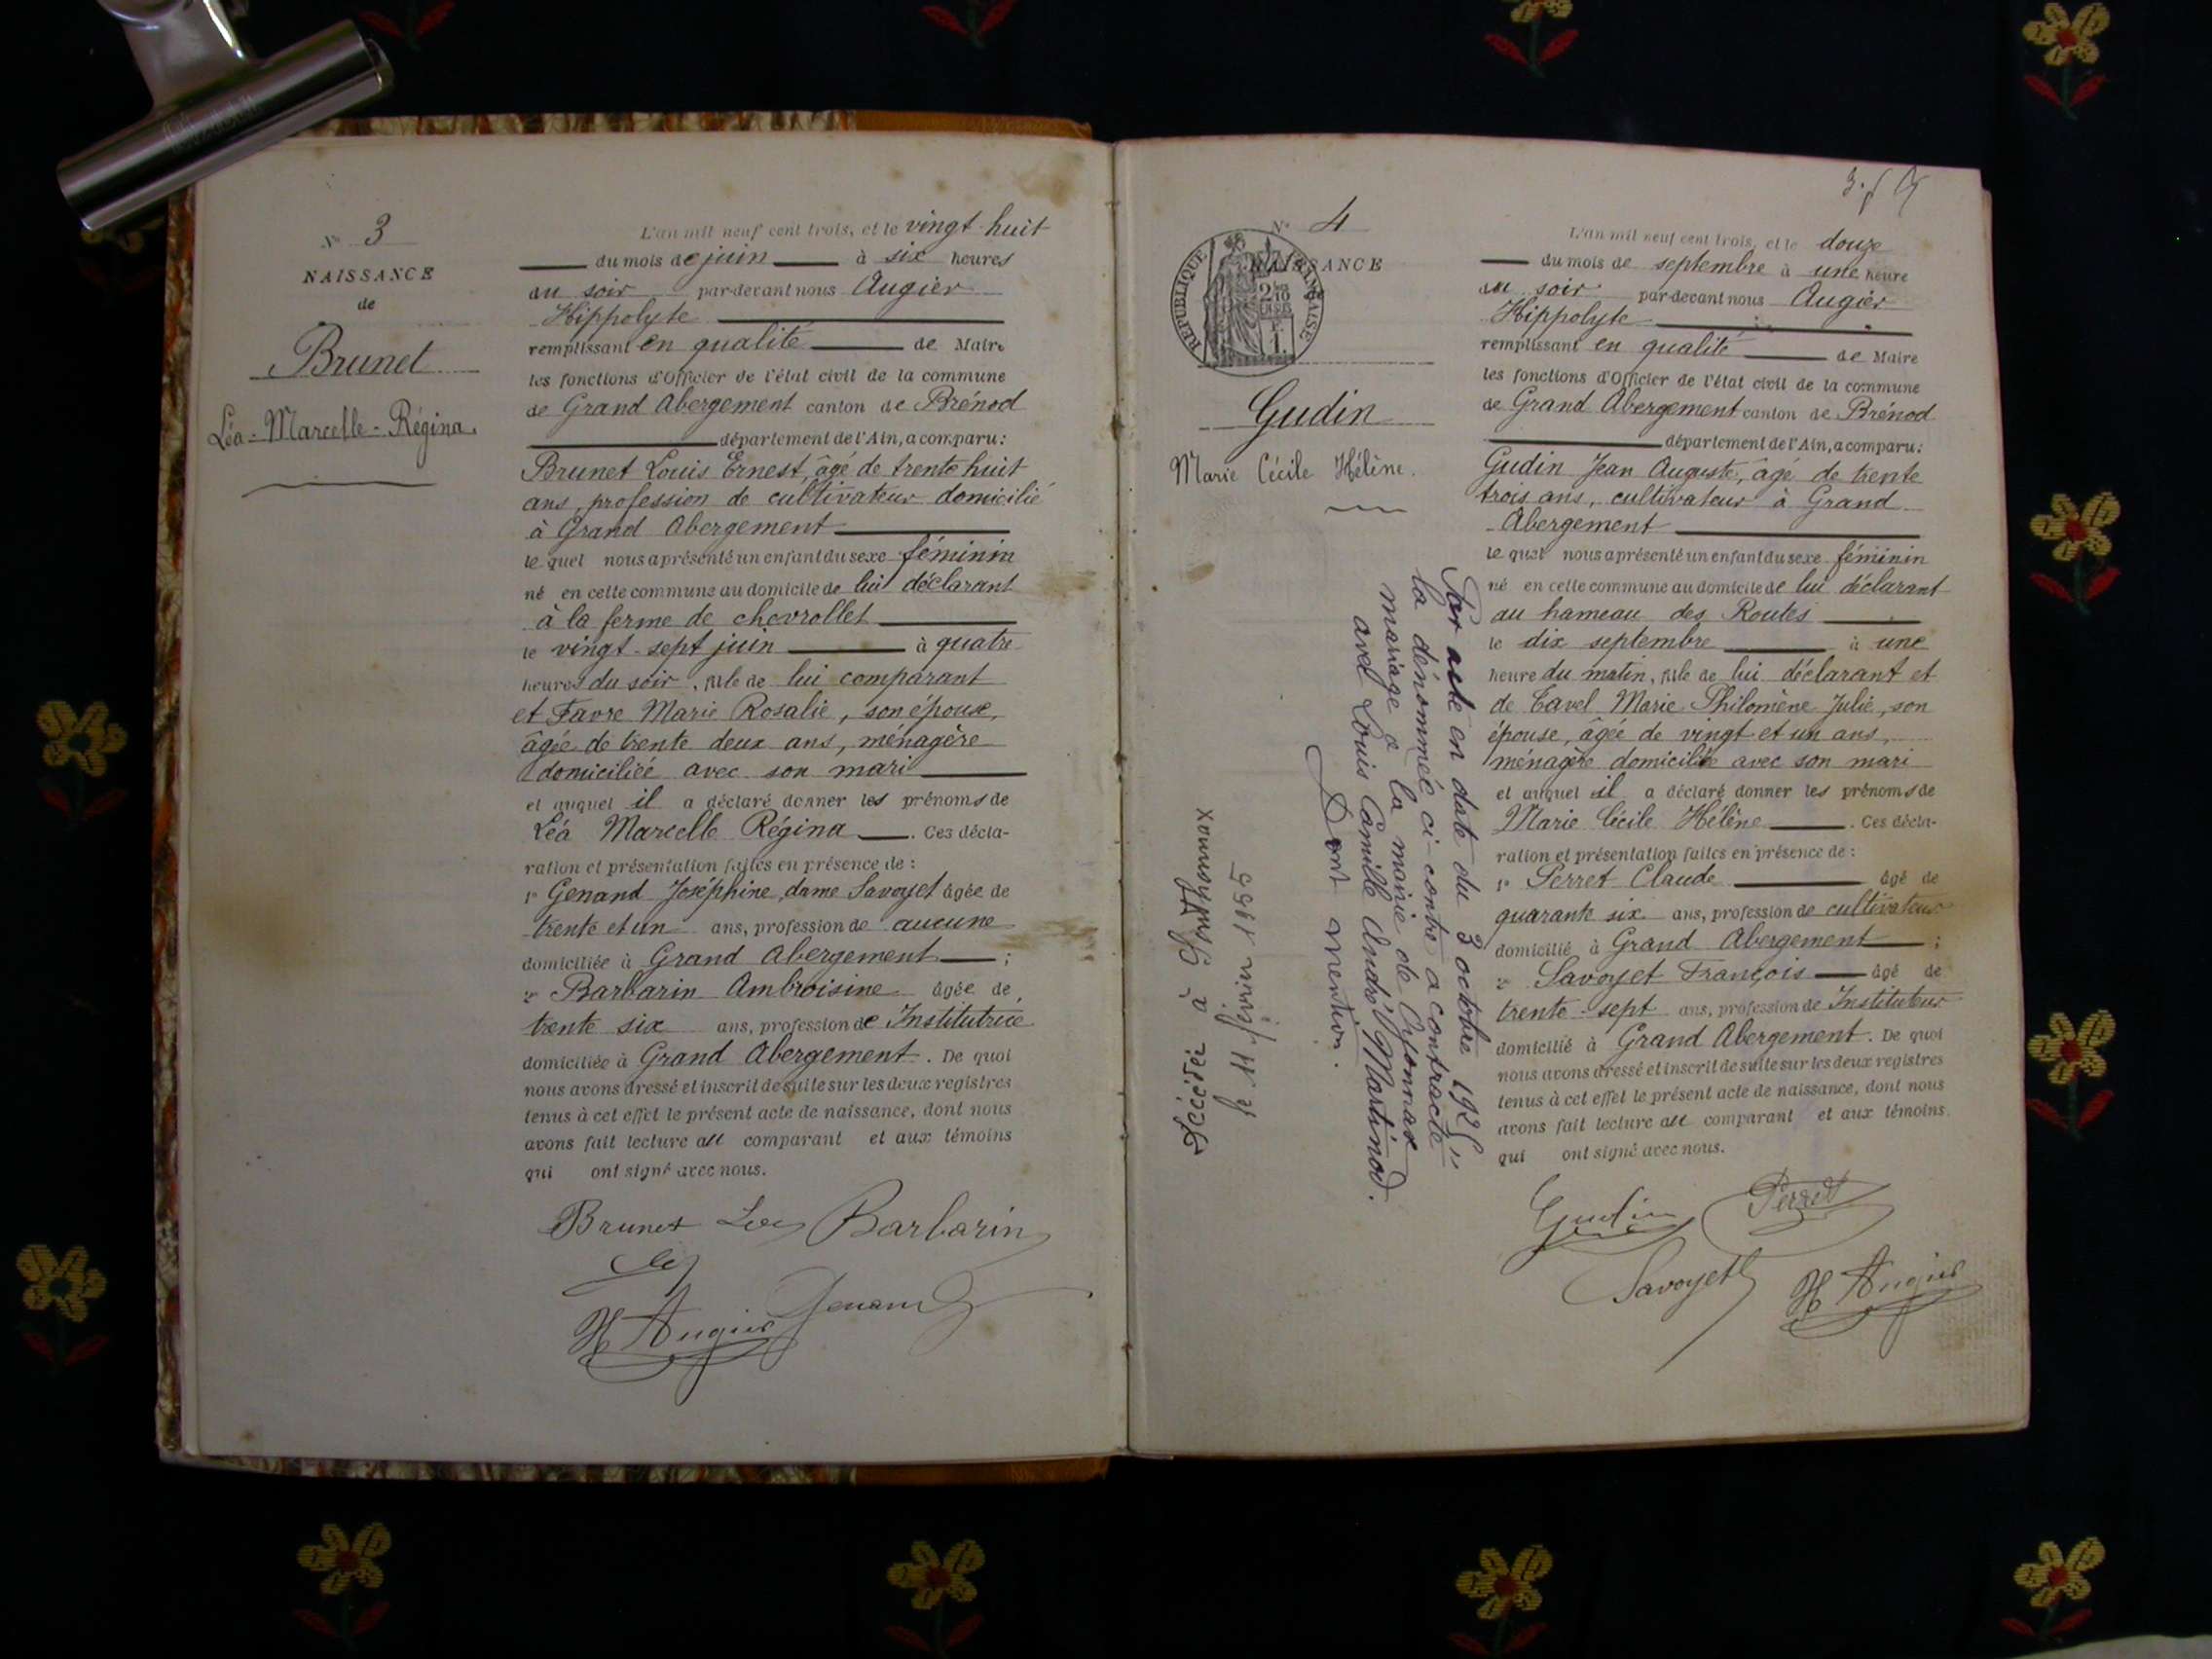 N° 3
NAISSANCE
de
Brunet
Léa-Marcelle-Régina.
L'an mil neuf cent trois, et le vingt huit
du mois de juin à six heures
du soir par-devant nous Augier
Hippolyte
remplissant en qualité de Maire
les fonctions d'Officier de l'état civil de la commune
de Grand Abergement canton de Brénod
département de l'Ain, a comparu:
Brunet Louis Ernest, âgé de trente huit
ans, profession de cultivateur domicilié
à Grand Abergement
le quel nous a présenté un enfant du sexe féminin
né en cette commune au domicile de lui déclarant
à la ferme de chevrollet
le vingt-sept juin à quatre
heures du soir, fille de lui comparant
et Favre Marie Rosalie, son épouse,
âgée de trente deux ans, ménagère
domiciliée avec son mari
et auquel il a déclaré donner les prénoms de
Léa Marcelle Régina. Ces décla-
ration et présentation faites en présence de:
1° Genand Joséphine, dame Savoyet âgée de
trente et un ans, profession de aucune
domiciliée à Grand Abergement;
2° Barbarin Ambroisine âgée de
trente six ans, profession de Institutrice
domiciliée à Grand Abergement. De quoi
nous avons dressé et inscrit de suite sur les deux registres
tenus à cet effet le présent acte de naissance, dont nous
avons fait lecture au comparant et aux témoins
qui ont signé avec nous.
Brunet Barbarin
H Augier Genand
N° 4
NAISSANCE
REPUBLIQUE FRANÇAISE
Gudin
Marie Cécile Hélène.
Par acte en date du 3 octobre 1925
la dénommée ci-contre a contracté
mariage à la mairie de Oyonnax
avec Louis Camille André Martinod.
Dont mention.
Décédée à Oyonnax
le 11 février 1955
L'an mil neuf cent trois, et le douze
du mois de septembre à une heure
du soir par-devant nous Augier
Hippolyte
remplissant en qualité de Maire
les fonctions d'Officier de l'état civil de la commune
de Grand Abergement canton de Brénod
département de l'Ain, a comparu:
Gudin Jean Auguste, âgé de trente
trois ans, cultivateur à Grand
Abergement
le quel nous a présenté un enfant du sexe féminin
né en cette commune au domicile de lui déclarant
au hameau des Routes
le dix septembre à une
heure du matin, fille de lui déclarant et
de Tavel Marie Philomène Julie, son
épouse, âgée de vingt et un ans,
ménagère domiciliée avec son mari
et auquel il a déclaré donner les prénoms de
Marie Cécile Hélène. Ces décla-
ration et présentation faites en présence de:
1° Perret Claude âgé de
quarante six ans, profession de cultivateur
domicilié à Grand Abergement;
2° Savoyet François âgé de
trente-sept ans, profession de Instituteur
domicilié à Grand Abergement. De quoi
nous avons dressé et inscrit de suite sur les deux registres
tenus à cet effet le présent acte de naissance, dont nous
avons fait lecture au comparant et aux témoins
qui ont signé avec nous.
Gudin Perret
Savoyet H Augier